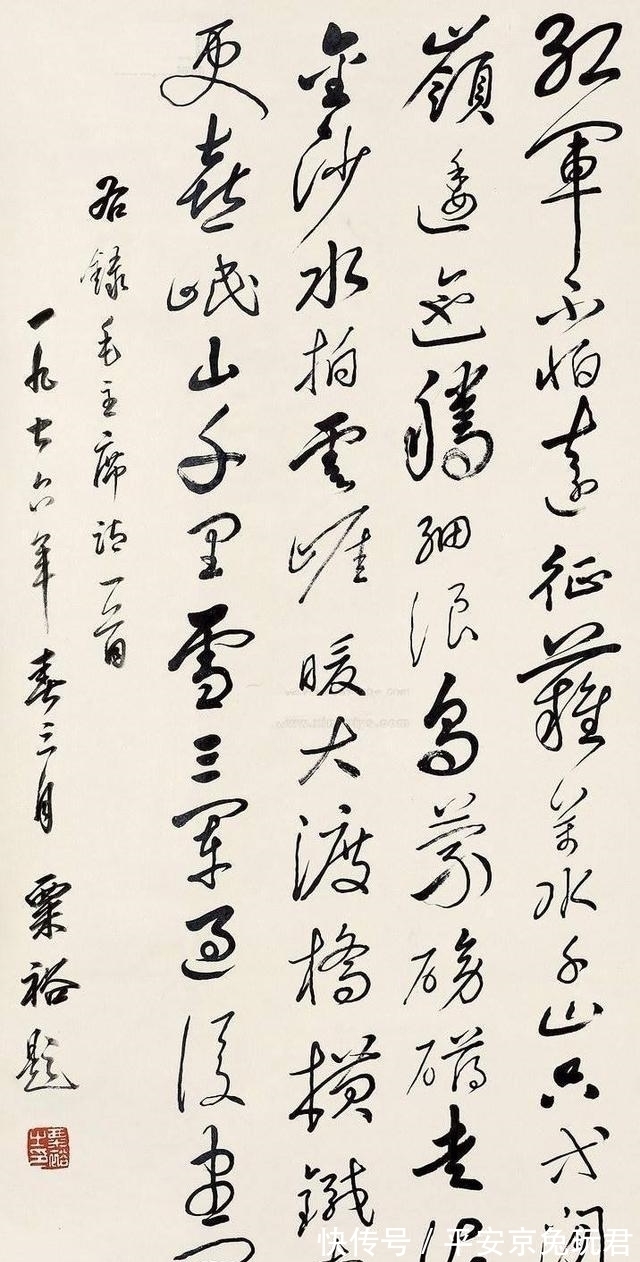 紅軍不怕遠征難萬水千山只等閑
嶺逶迤騰細浪烏蒙磅礴走泥
金沙水拍雲崖暖大渡橋橫鐵
更喜岷山千里雪三軍過後盡
右錄毛主席詩一首
一九七六年春三月 粟裕題
粟裕之印
快传号 / 平安京兔玩君